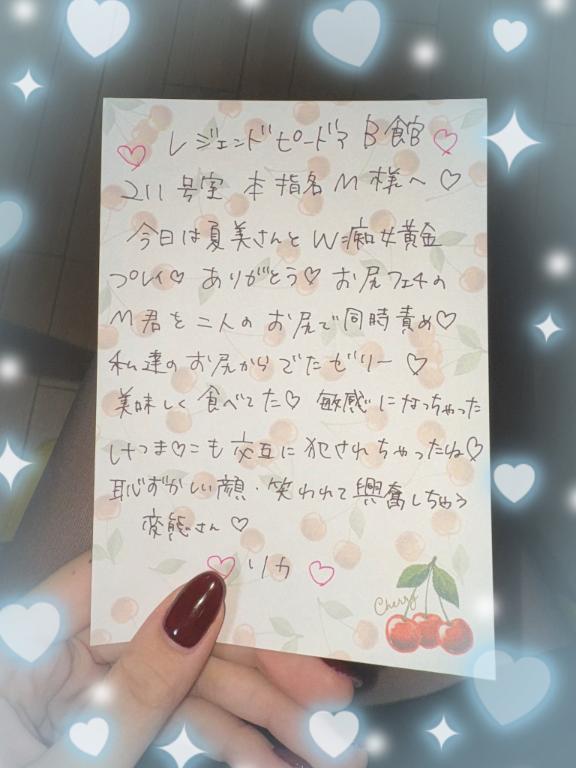 レジェンドピードア B館
211号室 本指名 M様へ♡
今日は夏美さんとW痴女黄金
プレイ♡ ありがとう♡ お尻フェチの
M君を二人のお尻で同時責め♡
私達のお尻からでたゼリー♡
美味しく食べてた♡ 敏感になっちゃった
けつま♡こも交互に犯されちゃったね♡
恥ずかしい顔・笑われて興奮しちゃう
変態さん♡
♡ リカ ♡
Cherry